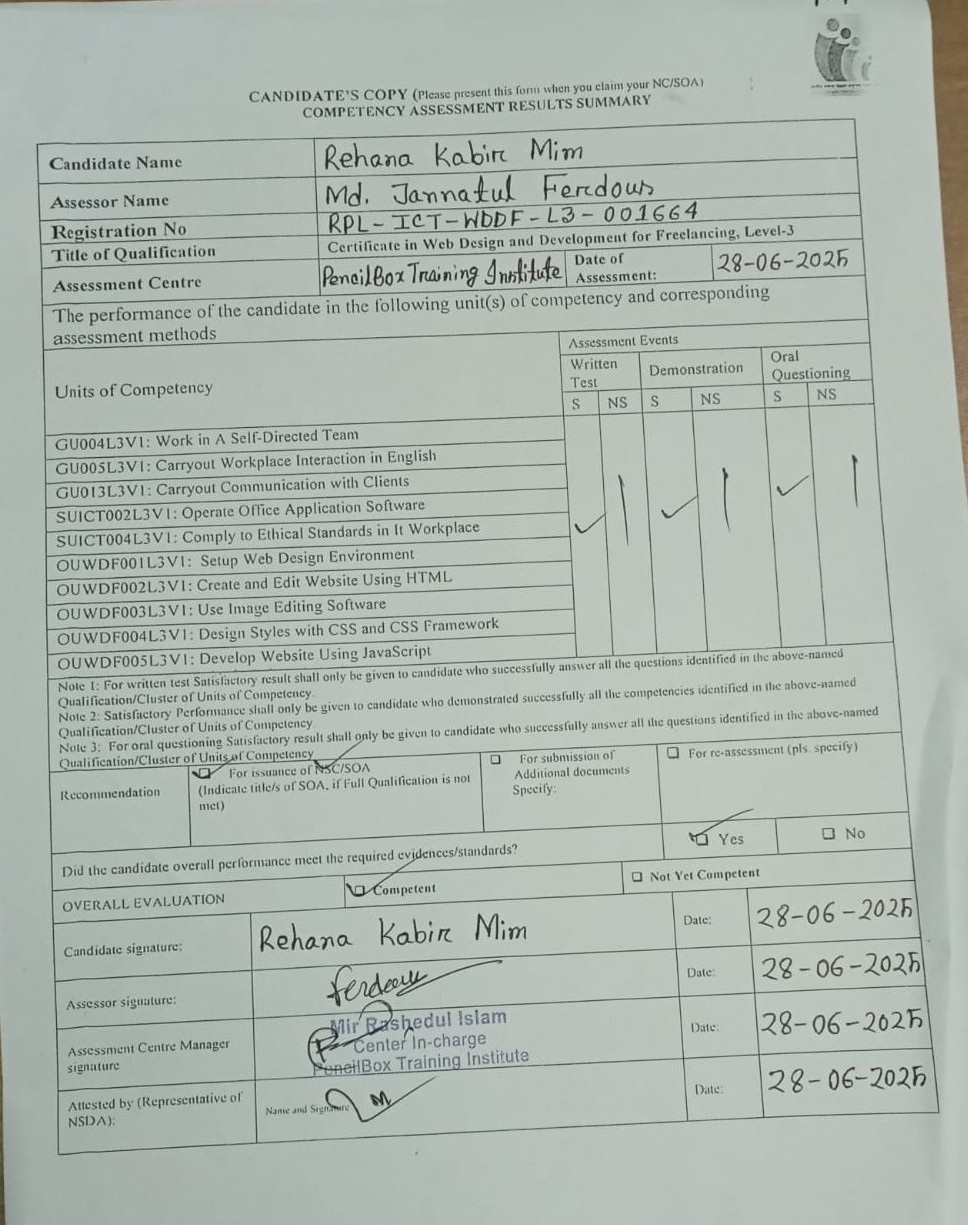 CANDIDATE'S COPY (Please present this form when you claim your NC/SOA)
COMPETENCY ASSESSMENT RESULTS SUMMARY
Candidate Name Rehana Kabir Mim
Assessor Name Md. Jannatul Ferdous
Registration No RPL-ICT-WDDF-L3-001664
Title of Qualification Certificate in Web Design and Development for Freelancing, Level-3
Assessment Centre PencilBox Training Institute Date of Assessment: 28-06-2025
The performance of the candidate in the following unit(s) of competency and corresponding
assessment methods
Units of Competency
Assessment Events
Written Test Demonstration Oral Questioning
S NS S NS S NS
GU004L3V1: Work in A Self-Directed Team
GU005L3V1: Carryout Workplace Interaction in English
GU013L3V1: Carryout Communication with Clients
SUICT002L3V1: Operate Office Application Software
SUICT004L3V1: Comply to Ethical Standards in It Workplace
OUWDF001L3V1: Setup Web Design Environment
OUWDF002L3V1: Create and Edit Website Using HTML
OUWDF003L3V1: Use Image Editing Software
OUWDF004L3V1: Design Styles with CSS and CSS Framework
OUWDF005L3V1: Develop Website Using JavaScript
Note 1: For written test Satisfactory result shall only be given to candidate who successfully answer all the questions identified in the above-named
Qualification/Cluster of Units of Competency
Note 2: Satisfactory Performance shall only be given to candidate who demonstrated successfully all the competencies identified in the above-named
Qualification/Cluster of Units of Competency
Note 3: For oral questioning Satisfactory result shall only be given to candidate who successfully answer all the questions identified in the above-named
Qualification/Cluster of Units of Competency
Recommendation
For issuance of NSC/SOA
(Indicate title/s of SOA, if Full Qualification is not
met)
For submission of
Additional documents
Specify:
For re-assessment (pls. specify)
Did the candidate overall performance meet the required evidences/standards? Yes No
OVERALL EVALUATION Competent Not Yet Competent
Candidate signature: Rehana Kabir Mim Date: 28-06-2025
Assessor signature: Ferdous Date: 28-06-2025
Assessment Centre Manager
signature
Mir Rashedul Islam
Center In-charge
PencilBox Training Institute
Date: 28-06-2025
Attested by (Representative of
NSDA):
Name and Signature
Date: 28-06-2025